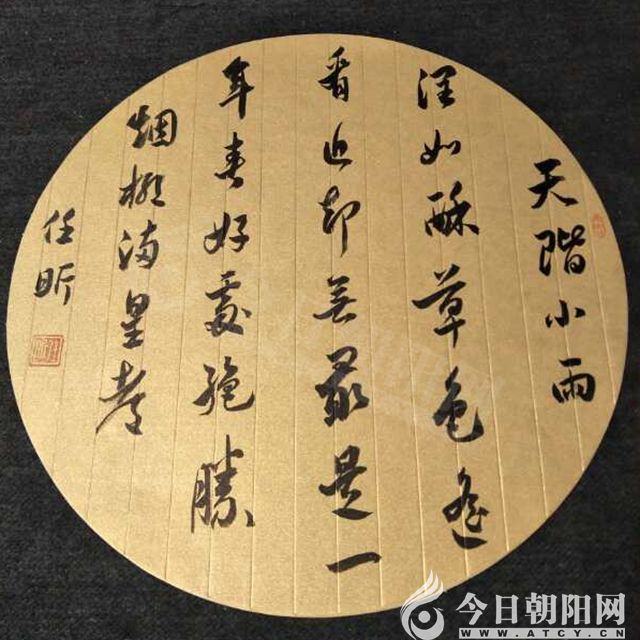 天階小雨
潤如酥草色遙
看近却無最是一
年春好處絕勝
烟柳滿皇都
任昕
今日朝阳网
WWW.ATCY.CN